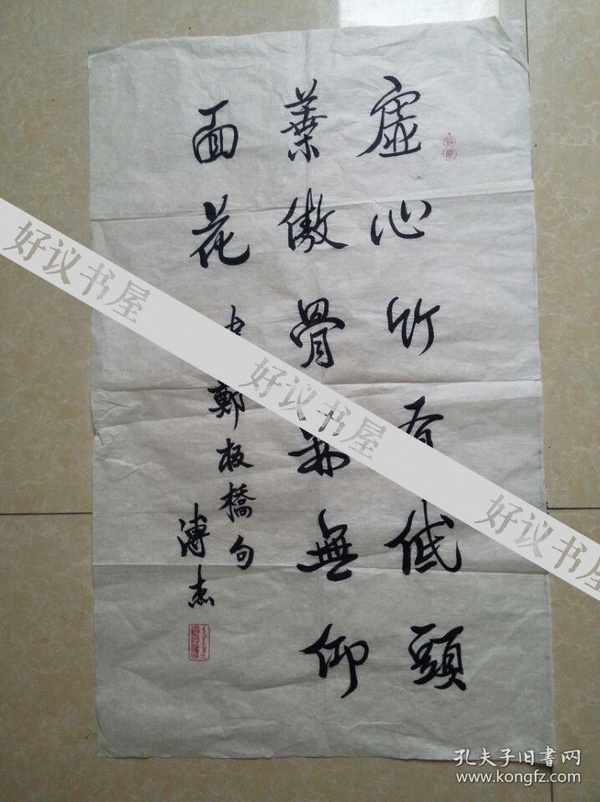 虛心竹有低頭
葉傲骨梅無仰
面花
書鄭板橋句
溥杰
好议书屋
好议书屋
好议书屋
孔夫子旧书网
www.kongfz.com